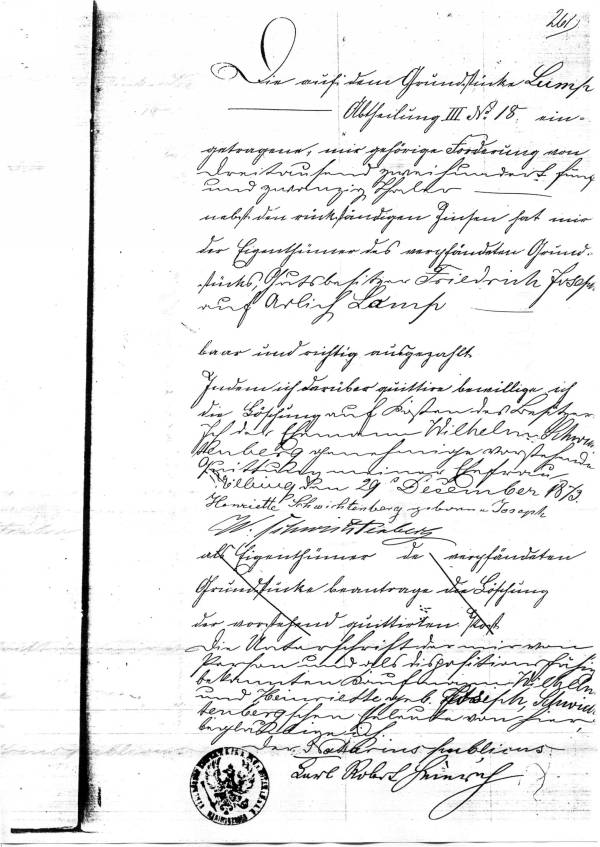 261
Die auf dem Grundstücke Lump
Abtheilung III No 18. ein-
getragene, mir gehörige Forderung von
dreitausend zweihundert fünf
und zwanzig Thaler
nebst den rückständigen Zinsen hat mir
der Eigenthümer des verpfändeten Grund-
stücks, Gutsbesitzer Friedrich Joseph
auf Lamp
baar und richtig ausgezahlt
Indem ich darüber quittire bewillige ich
die Löschung auf Kosten des Besitzers.
Ich der Ehemann Wilhelm Schwich
tenberg genehmige vorstehende
Quittung meiner Ehefrau
Elbing den 29 December 1873.
Henriette Schwichtenberg geborene Joseph
W. Schwichtenberg
als Eigenthümer de verpfändeten
Grundstücke beantrage die Löschung
der vorstehend quittirten Post.
Die Unterschrift der mir von
Person und als dispositionsfähig
bekannten Kaufmann Wilhelm
und Henriette geb. Joseph, Schwich
tenbergschen Eheleute von hier
beglaubigt
der Notarius publicus
Carl Robert Heinrich